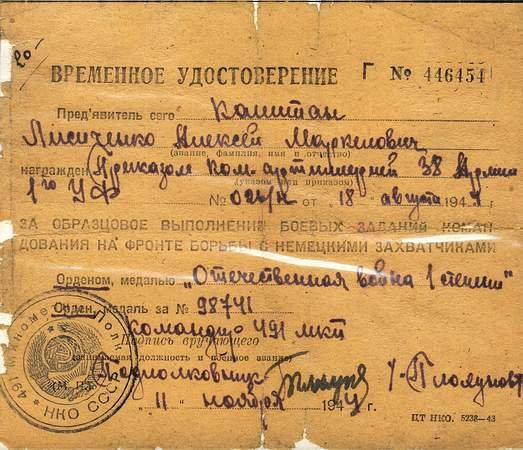 20-
ВРЕМЕННОЕ УДОСТОВЕРЕНИЕ Г № 446454
Пред'явитель сего Капитан
Лисиченко Алексей Маркелович
(звание, фамилия, имя и отчество)
награжден Приказом Ком. артиллерией 38 Армии
1го УФ (указом или приказом) № 026/н от "18" августа 1944
ЗА ОБРАЗЦОВОЕ ВЫПОЛНЕНИЕ БОЕВЫХ ЗАДАНИЙ КОМАН-
ДОВАНИЯ НА ФРОНТЕ БОРЬБЫ С НЕМЕЦКИМИ ЗАХВАТЧИКАМИ
Орденом, медалью "Отечественная война 1 степени"
Орден, медаль за № 98741
Командир 491 мкп
Подпись вручающего
(занимаемая должность и военное звание)
Подполковник
"11" ноября 1944 г.
М. П.
491 Миномет Полк
НКО СССР
ЦТ НКО. 5238—43